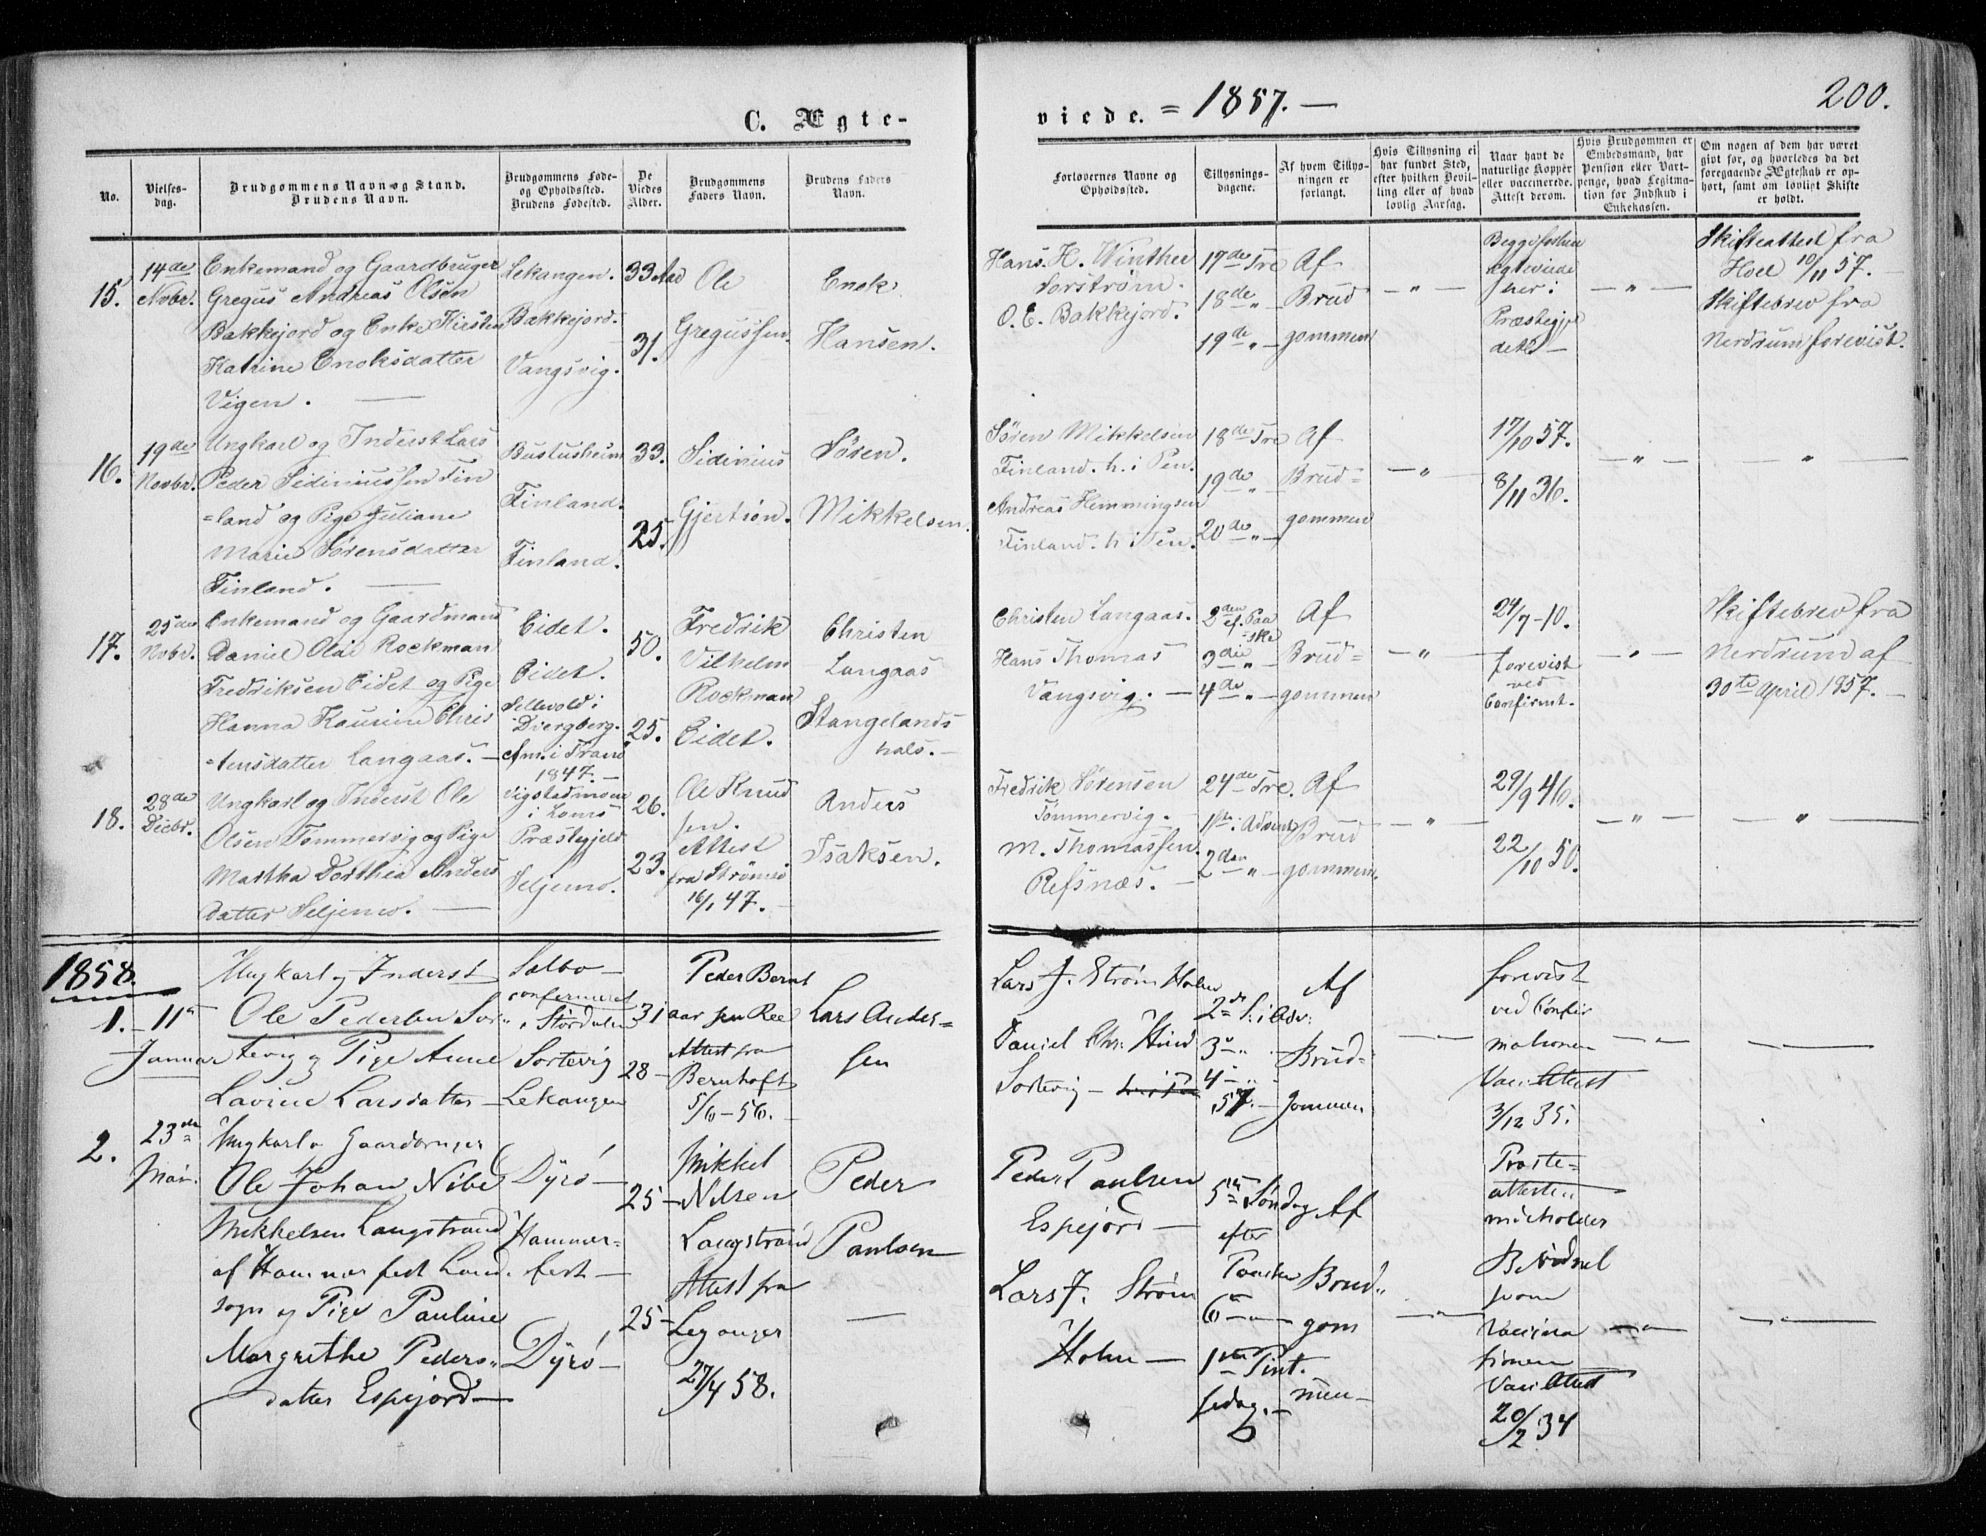 C. Ægte-
viede. = 1857. —
200.
No.
Vielses-
dag.
Brudgommens Navn og Stand.
Brudens Navn.
Brudgommens Føde-
og Opholdssted.
Brudens Fødested.
De
Viedes
Alder.
Brudgommens
Faders Navn.
Brudens Faders
Navn.
Forlovernes Navne og
Opholdssted.
Tillysnings-
dagene.
Af hvem Tillys-
ningen er
forlangt.
Hvis Tillysning ei
har fundet Sted,
efter hvilken Bevil-
ling eller af hvad
lovlig Aarsag.
Naar havt de
naturlige Kopper
eller vaccinerede.
Attest derom.
Hvis Brudgommen er
Embedsmand, har
Pension eller Vart-
penge, hvad Legitima-
tion for Indskud i
Enkekassen.
Om nogen af dem har været
gift før, og hvorledes da det
foregaaende Ægteskab er op-
hørt, samt om lovligt Skifte
er holdt.
15.
14de
Novbr.
Enkemand og Gaardbruger
Gregus Andreas Olsen
Bakkejord og Enke Kirsten
Katrine Enoksdatter
Vigen. —
Lekangen.
Bakkejord.
Vangsvig.
33 Aar
31.
Ole
Gregussen.
Enok
Hansen.
Hans. H. Winther
Forstrøm.
O. E. Bakkejord.
17de Tre
18de „
19de „ —
Af
Brud
gommen
— „ —
Præstegjel
det —
— „ —
Skifteattest fra
Hoel 10/11 57. —
Skiftebrev fra
Nerdrum forevist.
16.
19de
Novbr.
Ungkarl og Inderst Lars
Peder Sidiniussen Fin
=land og Pige Juliane
Marie Sørensdatter
Finland. —
Finland.
Finland.
33.
25.
Sidinius
Gjertsøn.
Søren.
Mikkelsen.
Søren Mikkelsen
Finland. h. i Pen.
Andreas Hemmingsen
Finland. h. i Pen.
18de Tre
19de „ —
20de „ —
Af
Brud=
gommen
— „ —
17/10 57.
8/11 36.
— „ —
— „ —
17.
25de
Novbr.
Enkemand og Gaardmand
Daniel Olai Rockman
Fredriksen Eidet og Pige
Hanna Kaurine Chris
=tensdatter Langaas. —
Eidet.
Eidet.
Sellevold i
Bjergberg.
Anm. i Tranø
1847. —
50.
25.
Fredrik
Vilhelm
Rockman
Eidet.
Christen
Langaas
Stangelands
hals. —
Christen Langaas.
Hans Thomas
Vangsvig. —
2den ef. Paa
ske
3die „
4de „ —
Af
Brud=
gommen
— „ —
24/7 - 10.
forevist
ved
Confirmt.
— „ —
Skiftebrev fra
Nerdrum af
30te April 1857. —
18.
28de
Decbr.
Ungkarl og Inderst Ole
Olsen Tømmervig og Pige
Martha Dorthea Anders
datter Seljemo. —
Vigstadmoen
i Loms
Præstegjeld
Seljemo.
26.
23.
Ole Knud
sen.
Attest
fra Strømsø
16/1 47. —
Anders
Isaksen.
Fredrik Sørensen
Tømmervig. —
M. Thomassen.
Refsnæs. —
24de Tre.
1ste i Advent
2den „ —
Af
Brud
gommen.
— „ —
29/9 46.
22/10 50.
— „ —
— „ —
1858.
1.
11te
Januar
Ungkarl og Inderst
Ole Pedersen Sor„
tevig og Pige Anne
Lavine Larsdatter —
Sælbo —
confirmeret
i Størdalen
Sortevig
Lekangen
31
28 —
Peder Bernt
Attest fra
Bernhoft
5/6 — 56. —
Lars Ander=
sen
Lars J. Strøm Holm
Daniel Chr. Hind
Sortevig —
2de S: i Adv:
3 „ —
4 — „
57. —
Af
Brud=
gommen
— „ —
forevist
ved Confir
mationen
Vac: Attest
3/12 35.
— „ —
— „ —
2.
23de
Mai.
Ungkarl og Gaardbruger
Ole Johan Nibe
Mikkelsen Langstrand
af Hammerfest Land
sogn og Pige Pauline
Margrethe Peders„
datter Espejord —
Dyrø —
Hammer=
fest —
Dyrø —
25 —
25 —
Mikkel
Nilsen
Langstrand
Attest fra
Leganger
27/4 58.
Peder
Paulsen
—
Peder Paulsen
Espejord —
Lars J. Strøm
Holm —
5te Søndag
efter
Paaske
6te — „ —
1ste Pint.
sedag. —
Af
Brud„
gom
men —
— „ —
Præste=
attesten
indeholder
som
Vaccina
tionen
Vac: Attest
20/2 34
— „ —
— „ —